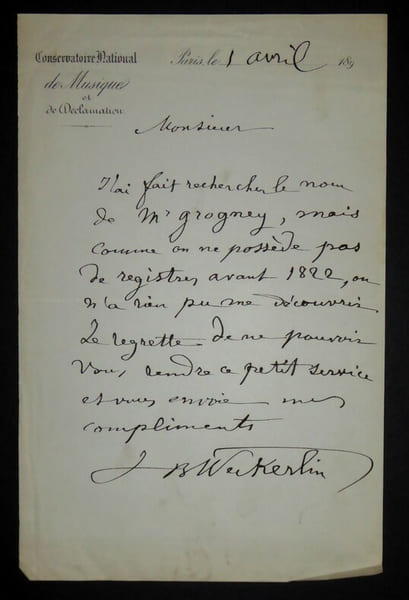 Conservatoire National
de Musique
et
de Déclamation
Paris, le 1 avril 189
Monsieur
J'ai fait rechercher le nom
de Mr Grogney, mais
comme on ne possède pas
de registres avant 1822, on
n'a rien pu me découvrir.
Je regrette de ne pouvoir
vous rendre ce petit service
et vous envoie mes
compliments
J B Weckerlin